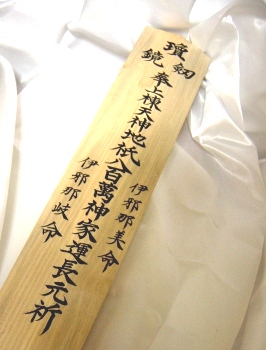 瓊 剱
鏡
奉上棟天神地祇八百萬神家運長元祈
伊邪那美命
伊邪那岐命